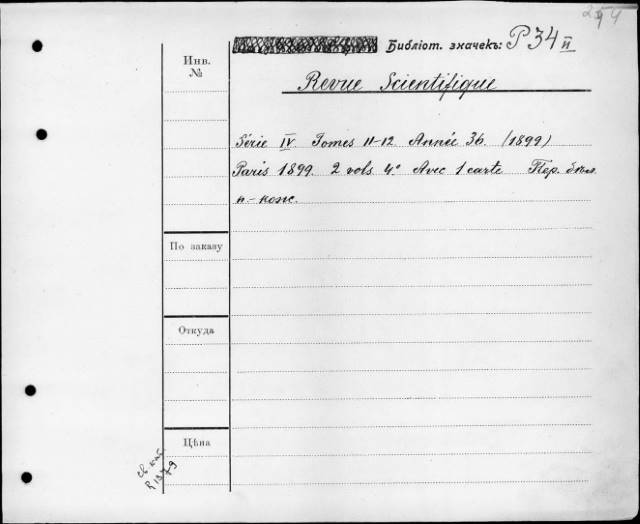 254
Библіот. значекъ: P 34 II
Инв.
№
Revue Scientifique
Série IV. Tomes 11-12. Année 36. (1899)
Paris 1899. 2 vols. 4º Avec 1 carte Пер. библ.
п.-кож.
По заказу
Откуда
Цѣна